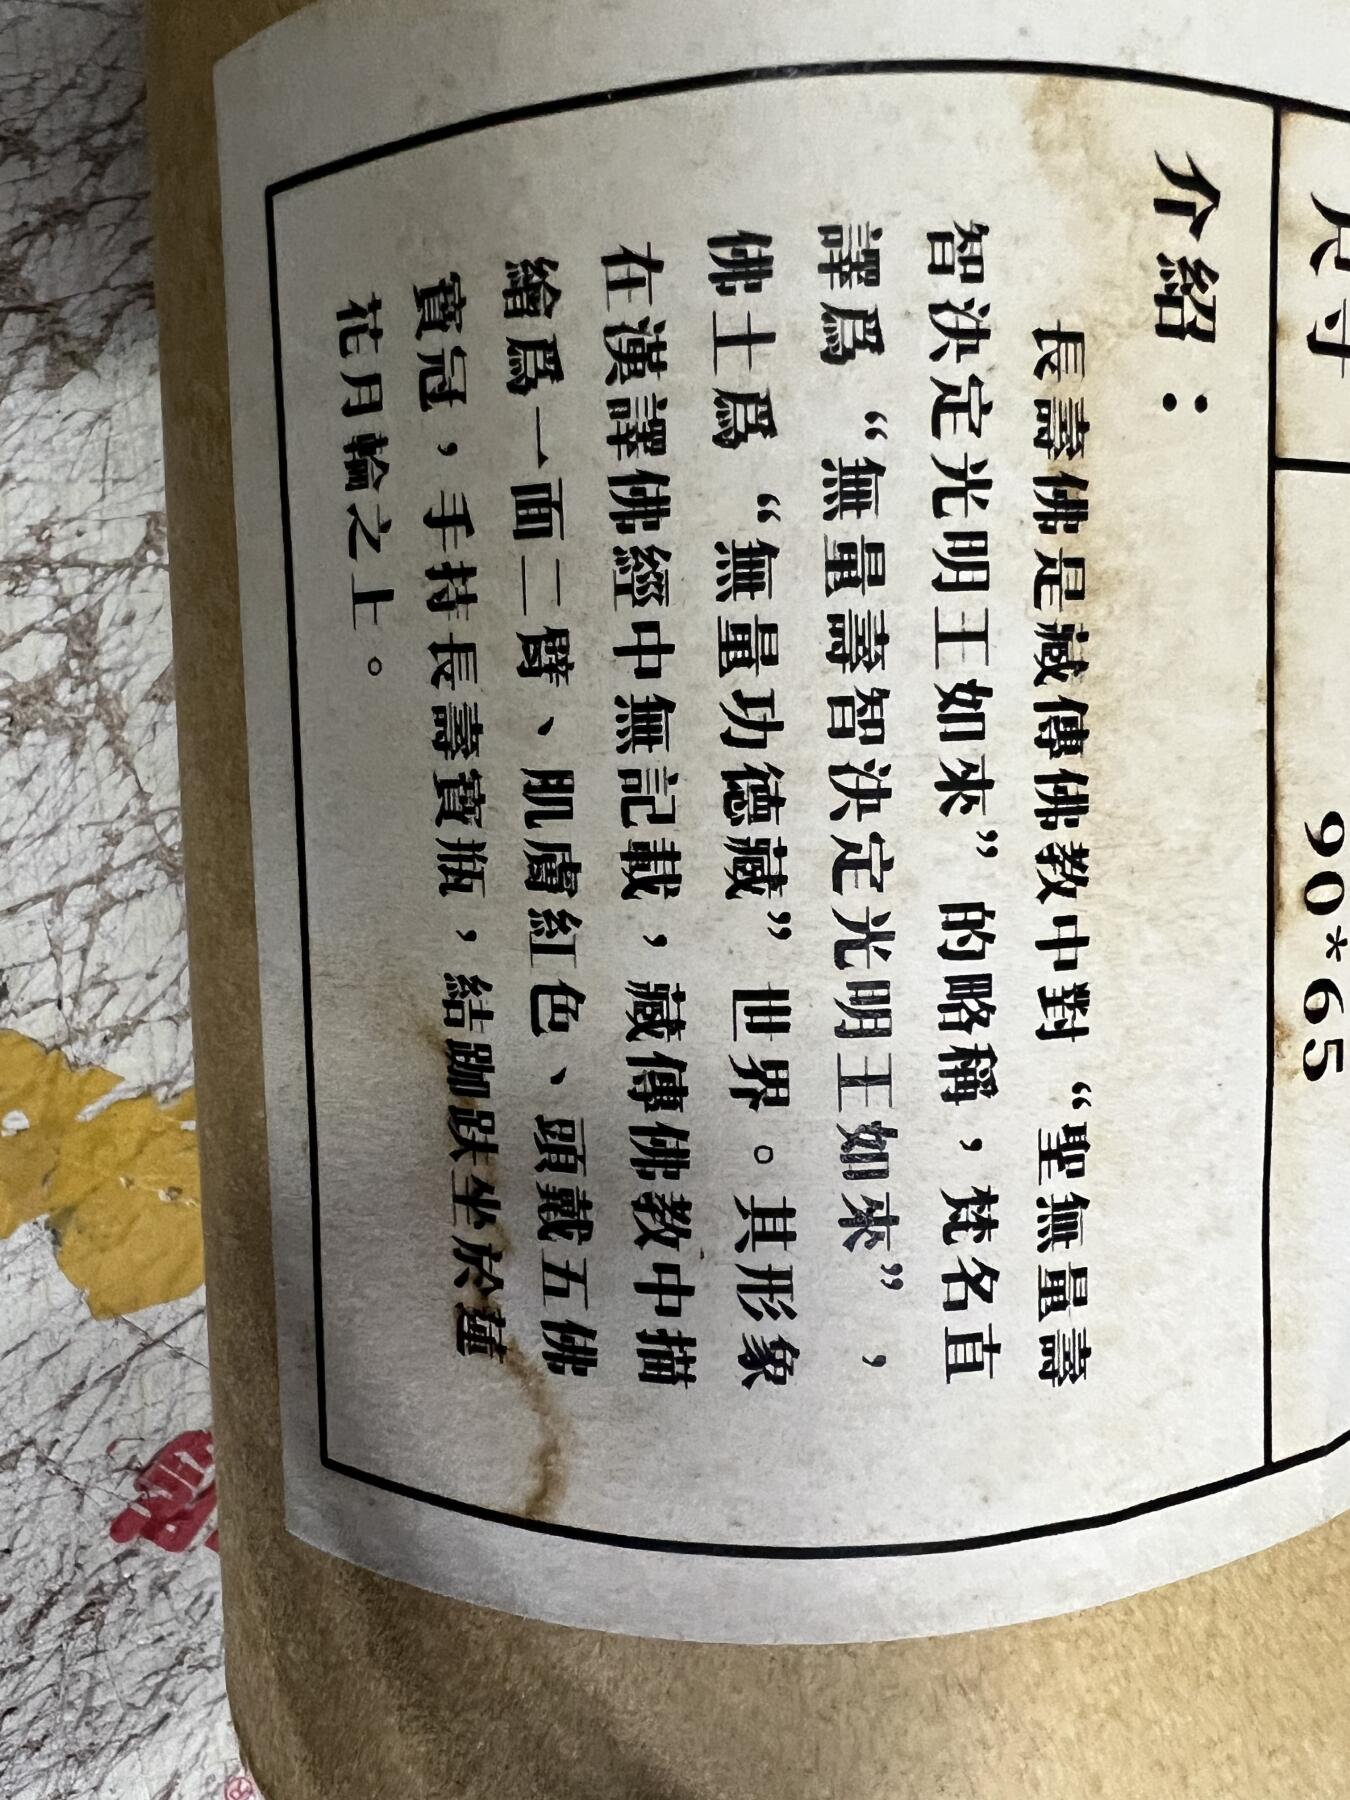 尺寸
90*65
介紹：
長壽佛是藏傳佛教中對“聖無量壽
智決定光明王如來”的略稱，梵名直
譯爲“無量壽智決定光明王如來”，
佛土爲“無量功德藏”世界。其形象
在漢譯佛經中無記載，藏傳佛教中描
繪爲一面二臂、肌膚紅色、頭戴五佛
寶冠，手持長壽寶瓶，結跏趺坐於蓮
花月輪之上。